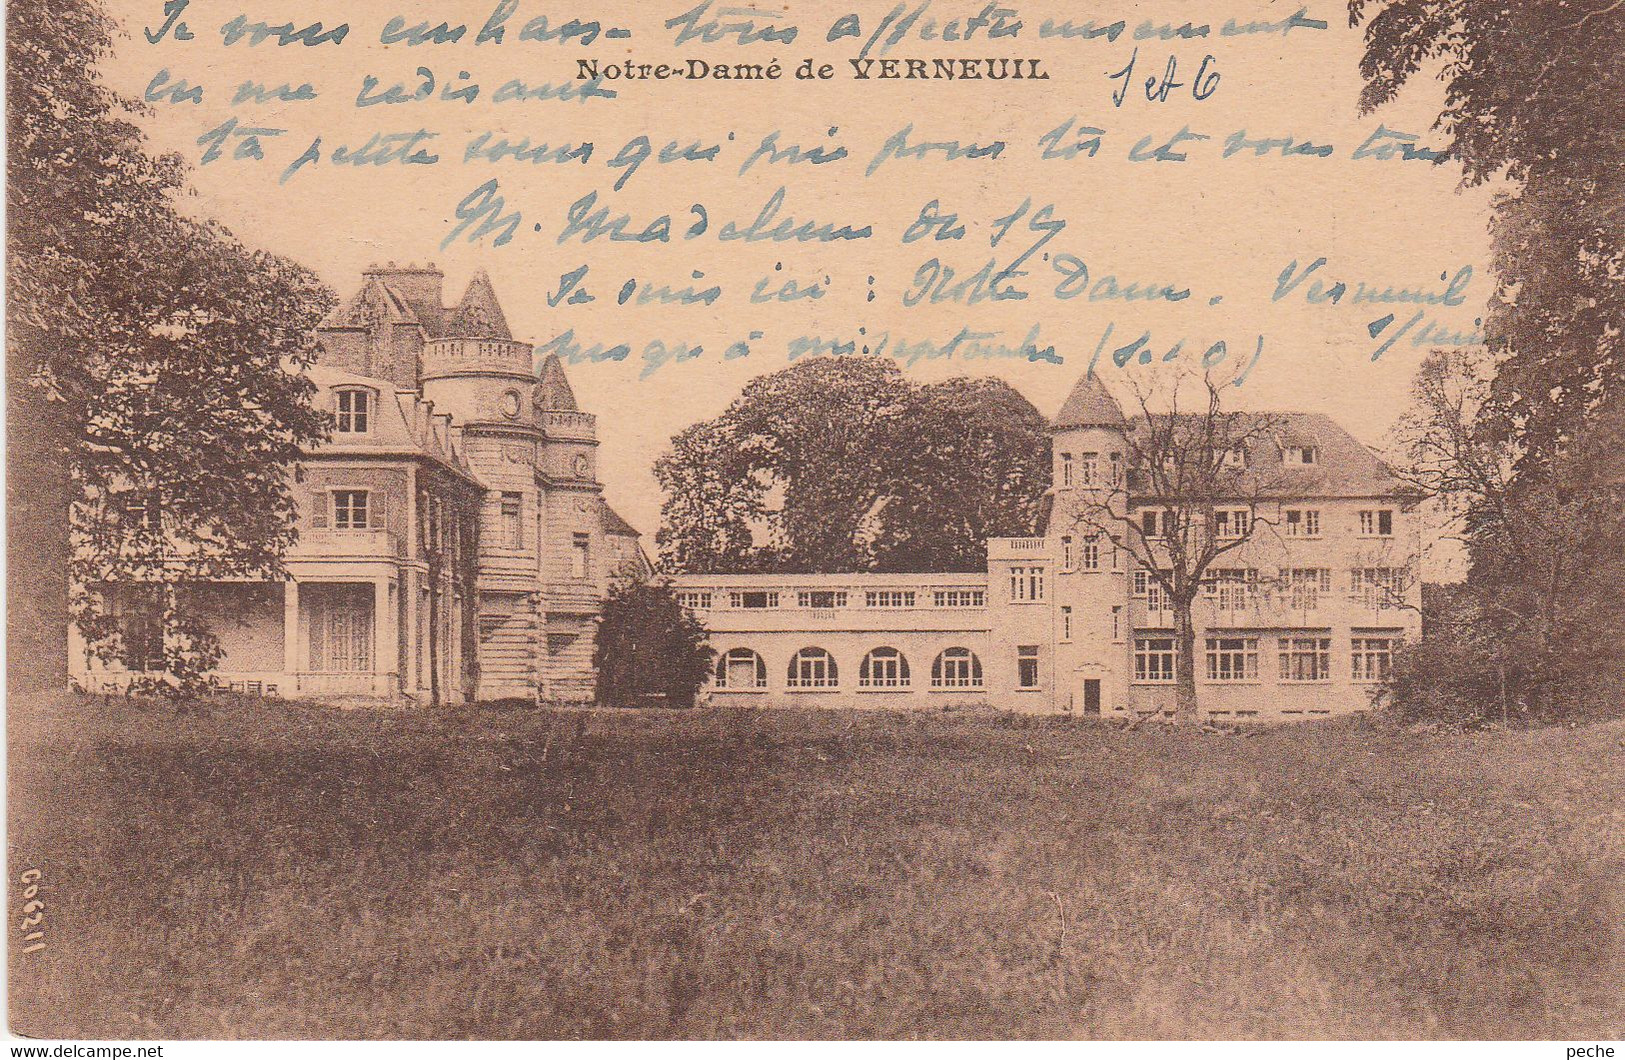 Je vous embrasse tous affectueusement
Notre-Damé de VERNEUIL
en me redisant S et O
ta petite soeur qui prie pour toi et vous tous
M. Madeleine du S
Je suis ici : Notre Dame. Verneuil
s/seine
jusqu'à mi septembre (S et O)
COC211
www.delcampe.net
peche